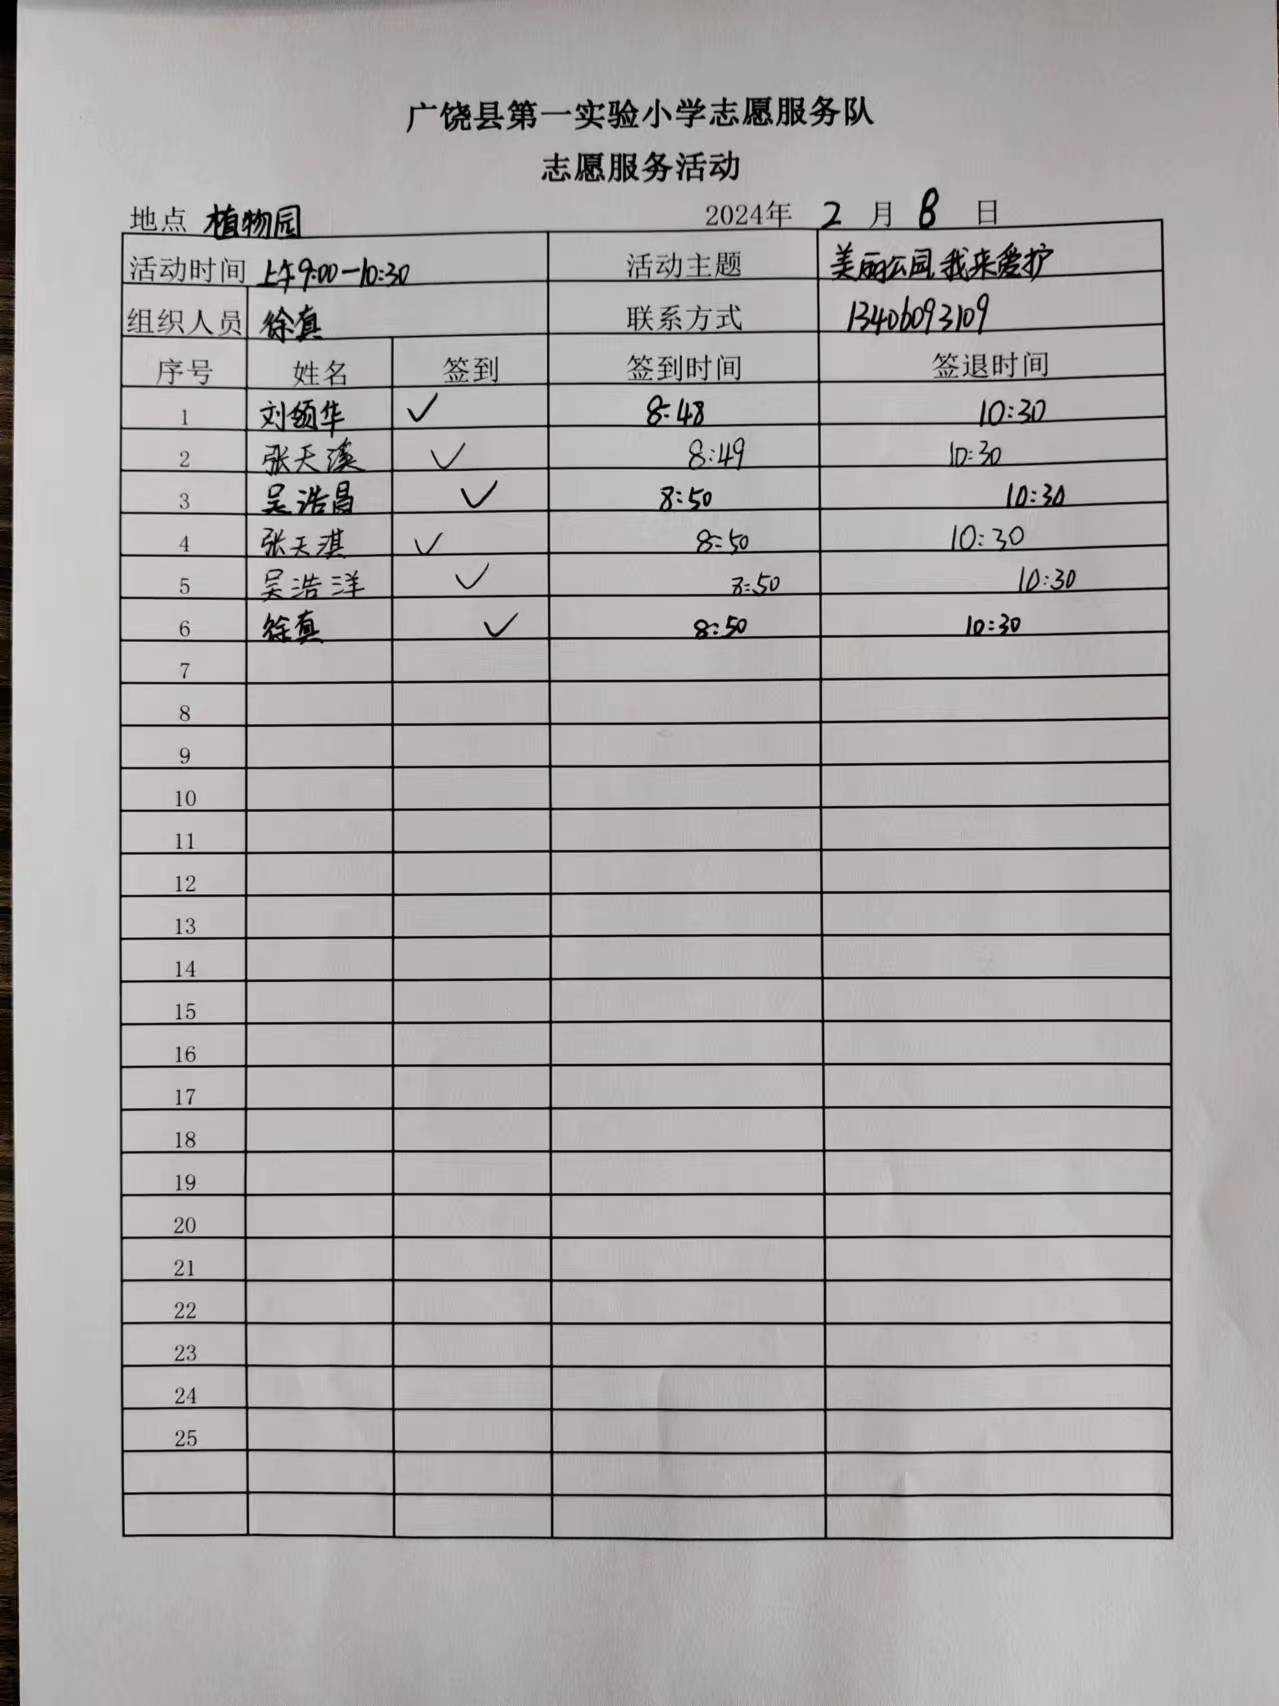 广饶县第一实验小学志愿服务队
志愿服务活动
地点 植物园 2024年 2 月 8 日
活动时间 上午9:00-10:30 活动主题 美丽公园,我来爱护
组织人员 徐真 联系方式 13406093109
序号 姓名 签到 签到时间 签退时间
1 刘领华 ✓ 8:48 10:30
2 张天溪 ✓ 8:49 10:30
3 吴浩昌 ✓ 8:50 10:30
4 张天淇 ✓ 8:50 10:30
5 吴浩洋 ✓ 8:50 10:30
6 徐真 ✓ 8:50 10:30
7
8
9
10
11
12
13
14
15
16
17
18
19
20
21
22
23
24
25